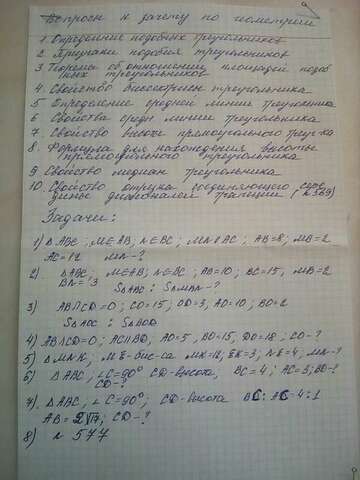 Вопросы к зачету по геометрии
1. Определение подобных треугольников
2. Признаки подобия треугольников
3 Теорема об отношении площадей подоб
ных треугольников
4. Свойство биссектрисы треугольника
5. Определение средней линии треугольника
6 Свойства средн линии треугольника
7. Свойство высоты прямоугольного треуг-ка
8. Формула для нахождения высоты
прямоугольного треугольника
9 Свойство медиан треугольника
10. Свойство отрезка соединяющего сере
дины диагоналей трапеции (
Задачи:
1) △ABC; M∈AB, N∈BC; MN∥AC; AB=8; MB=2
AC=12 MN-?
2) △ABC, M∈AB, N∈BC; AB=10; BC=15, MB=2
BN=3 S△ABC : S△MBN-?
3) AB∩CD=O; CO=15, OD=3, AO=10; BO=2
S△AOC : S△BOD
4) AB∩CD=O; AC∥BD, AO=5, BO=15, DO=18; CO-?
5) △MNK, ME-бис-са MK=12, EK=3, NE=4, MN-?
6) △ABC, ∠C=90° CD-высота, BC=4; AC=3; BD-?
CD-?
7) △ABC, ∠C=90°; CD-высота BC:AC=4:1
AB=2√17; CD-?
8) № 577